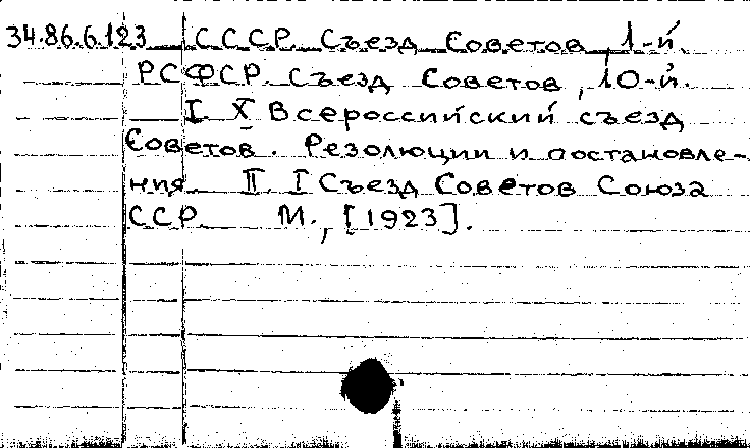 34.86.6.123 СССР. Съезд Советов, 1-й.
РСФСР. Съезд Советов, 10-й.
I. X Всероссийский съезд
Советов. Резолюции и постановле-
ния. II. I Съезд Советов Союза
ССР. М., [1923].